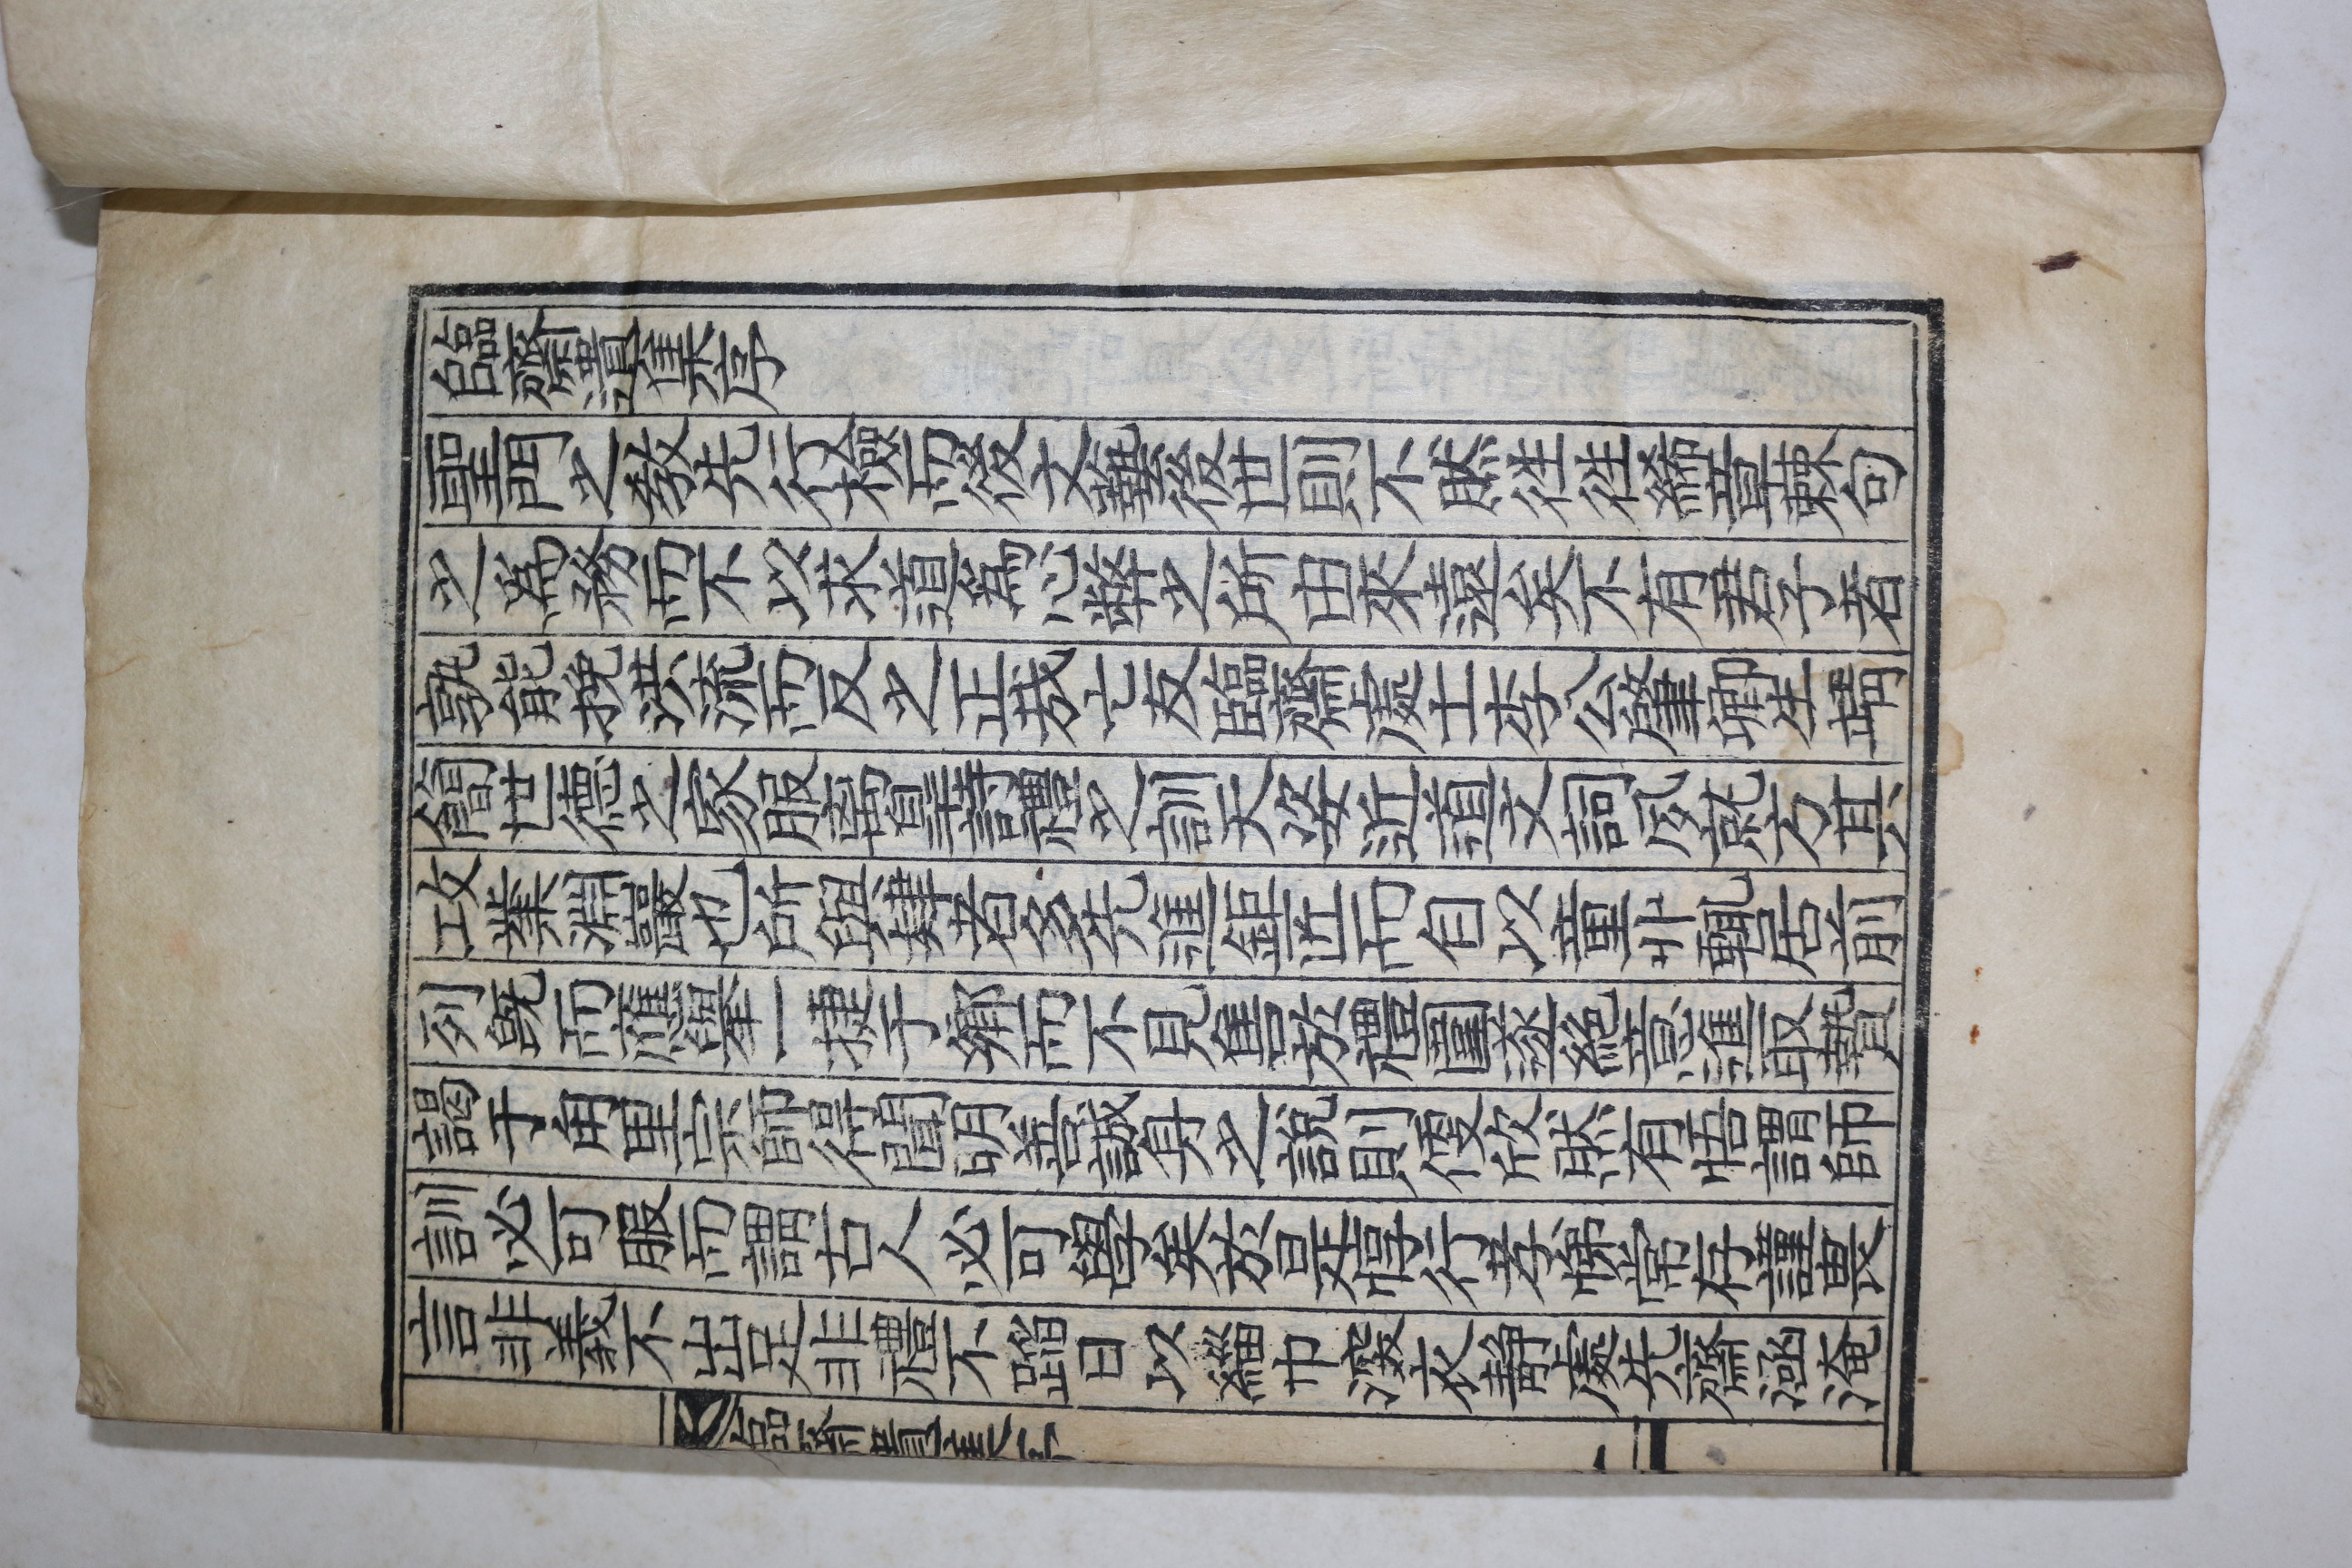 臨齋遺集序
聖門之敎先行檢而後文藝後世則不然徃徃絺章棘句
之爲務而不以求道爲心弊之所由來遠矣不有君子者
孰能挽洪流而反之正哉亡友臨齋處士李公肇卿生靖
簡世德之家服离皇詩禮之訓天姿近道文詞夙就方其
攻業淵巖也所與肄者多先進鉅匠而自以童丱輒居前
列旣而應擧一捷于鄕而不見售於禮圍遂絶意進取贄
謁于甪里宗師得聞明善誠身之說則優欣然有悟謂師
訓必可服而謂古人必可學矣於是惇行孝悌常存謹畏
言非義不出足非禮不蹈日以緇巾深衣靜處先齋涵淹
臨齋遺集序
一